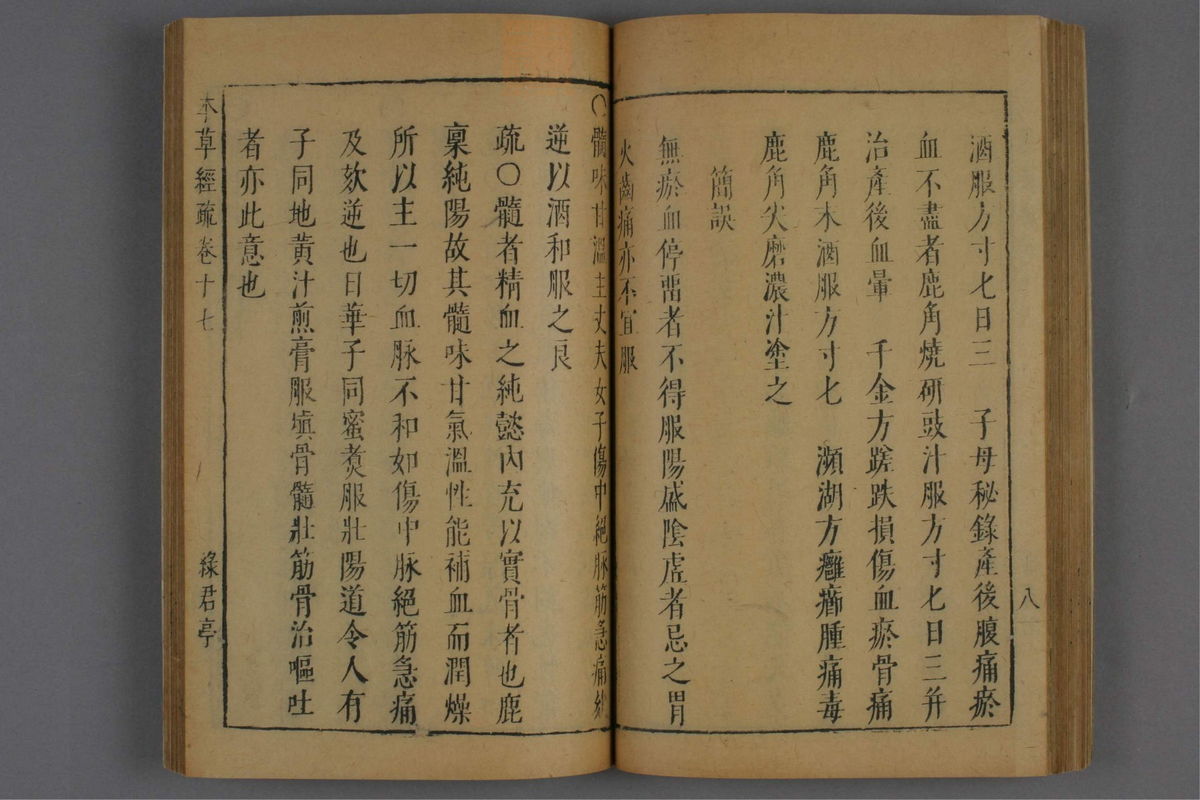 八
酒服方寸七日三　子母秘錄產後腹痛瘀
血不盡者鹿角燒研豉汁服方寸七日三并
治產後血暈　千金方蹉跌損傷血瘀骨痛
鹿角末酒服方寸七　瀕湖方癰癤腫痛毒
鹿角尖磨濃汁塗之
簡誤
無瘀血停畱者不得服陽盛陰虛者忌之胃
火齒痛亦不宜服
○髓味甘溫主丈夫女子傷中絕脉筋急痛
逆以酒和服之良
疏○髓者精血之純懿內充以實骨者也鹿
稟純陽故其髓味甘氣溫性能補血而潤燥
所以主一切血脉不和如傷中脉絕筋急痛
及欬逆也日華子同蜜煑服壯陽道令人有
子同地黃汁煎膏服塡骨髓壯筋骨治嘔吐
者亦此意也
本草經疏卷十七　綠君亭